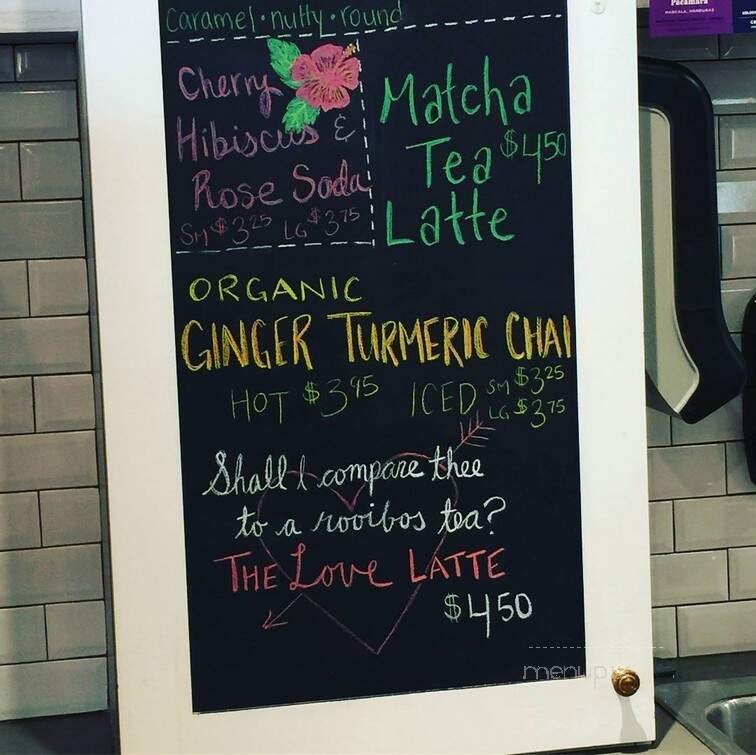 Caramel • nutty • round
Cherry
Hibiscus &
Rose Soda
SM $3 25 LG $3 75
Matcha
Tea $4 50
Latte
ORGANIC
GINGER TURMERIC CHAI
HOT $3 95 ICED SM $3 25
LG $3 75
Shall I compare thee
to a rooibos tea?
THE Love LATTE
$4 50
Pacamara
MARCALA, HONDURAS